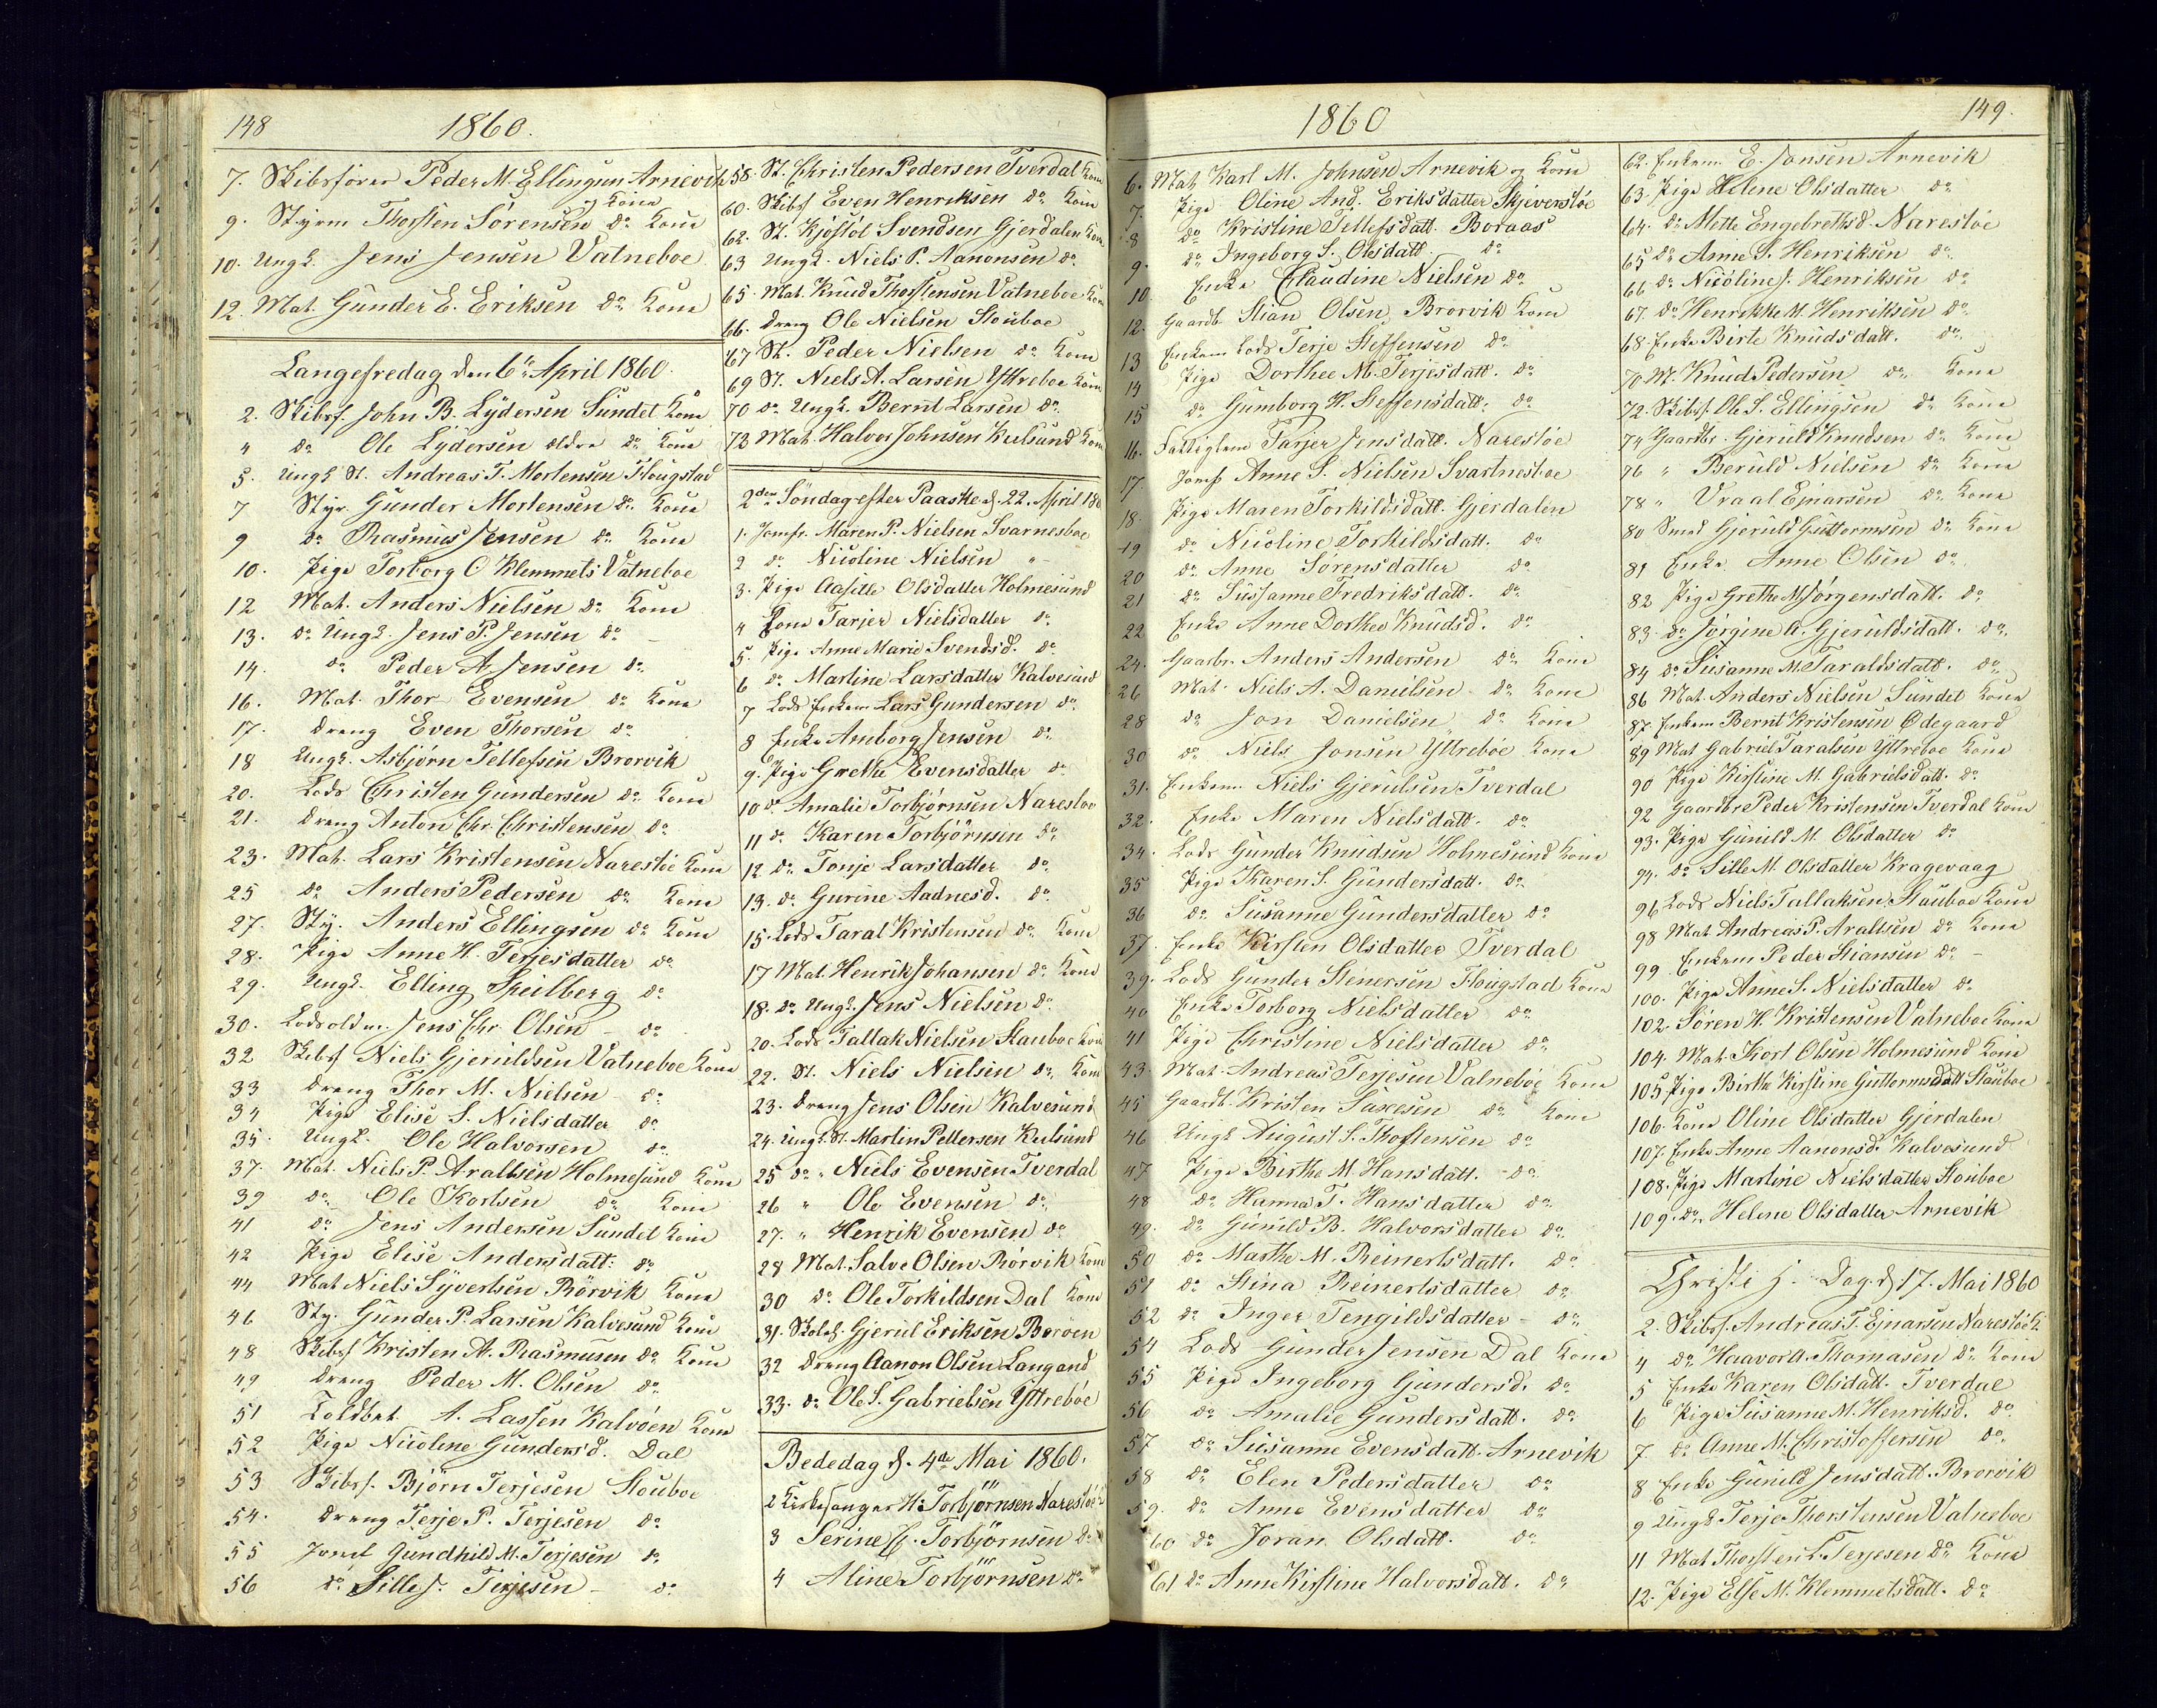 148
1860.
7. Skibsfører Peder M. Ellingsen Arnevik
og Kone
9. Styrm Thorsten Sørensen do Kone
10. Ungk. Jens Jensen Vatneboe
12. Mat. Gunder E. Eriksen do Kone
Langefredag den 6te April 1860.
2. Skibsf. John B. Lydersen Sundet Kone
" do Ole Lydersen ældre do Kone
5. Ungk St. Andreas T. Mortensen Flougstad
7 Styr. Gunder Mortensen do Kone
9 do Rasmus Jensen do Kone
10. Pige Torborg O Klemmets Vatneboe
12 Mat. Anders Nielsen do Kone
13. do Ungk. Jens P. Jensen do
14. do Peder A. Jensen do
16. Mat. Thor Evensen do Kone
17. Dreng Even Thorsen do
18 Ungk. Asbjørn Tellefsen Brorvik
20. Lods Christen Gundersen do Kone
21. Dreng Anton Chr. Christensen do
23. Mat. Lars Kristensen Narestöe Kone
25 do Anders Pedersen do Kone
27. Sty. Anders Ellingsen do Kone
28. Pige Anne H. Terjesdatter do
29. Ungk. Elling Speilberg do
30. Lodsoldm. Jens Chr. Olsen - do
32 Skibsf Niels Gjeruldsen Vatneboe Kone
33 Dreng Thor M. Nielsen - do
34 Pige Elise S. Nielsdatter do
35. Ungk. Ole Halvorsen do
37. Mat. Niels P. Araltsen Holmesund Kone
39 do Ole Kortsen do Kone
41 do Jens Andersen Sundet Kone
42 Pige Elise Andersdatt: do
44 Mat Niels Syvertsen Rörvik Kone
46 Sty. Gunder P. Larsen Kalvesund Kone
48 Skibsf Kristen A. Rasmusen do Kone
49 Dreng Peder M. Olsen do
51 Toldbet A. Lassen Kalvöen Kone
52 Pige Nicoline Gundersd. Dal
53 Skibsf. Björn Terjesen Stouboe
54. Dreng Terje P. Terjesen do
55 Jomf Gundhild M. Terjesen do
56 do Sille J. Terjesen - do
58. St. Christen Pedersen Tverdal Kone
60. Skibsf Even Henriksen do Kone
62. St. Kjøstöl Svendsen Gjerdalen Kone
63 Ungk. Niels P. Aanonsen do
65. Mat. Knud Thorstensen Vatneboe Kone
66. Dreng Ole Nielsen Stouboe
67 St. Peder Nielsen do Kone
69 St. Niels A. Larsen Yttreboe Kone
70 do Ungk. Bernt Larsen do
73 Mat. Halvor Johnsen Kulsund Kone
2den Söndag efter Paaske d. 22. April 186
1. Jomfr. Maren P. Nielsen Svarnesboe
2 do Nicoline Nielsen "
3. Pige Aasille Olsdatter Holmesund
4 Kone Tarjer Nielsdatter do
5. Pige Anne Marie Svendsd. do
6 do Martine Larsdatter Kalvesund
7 Lods Enkem Lars Gundersen do
8 Enke Amborg Jensen do
9. Pige Grethe Evensdatter do
10 do Amalie Torbjørnsen Narestoe
11 do Karen Torbjörnsen do
12 do Tonje Larsdatter do
13. do Gurine Aadnesd. do
15. Lods Taral Kristensen do Kone
17 Mat. Henrik Johansen do Kone
18. do Ungk. Jens Nielsen do
20. Lods Tallak Nielsen Stauboe Kone
22. St. Niels Nielsen do Kone
23. Dreng Jens Olsen Kalvesund
24. Ungk. St. Martin Pettersen Kulsund
25 do " Niels Evensen Tverdal
26 " Ole Evensen do
27. " Henrik Evensen do
28 Mat. Salve Olsen Rörvik Kone
30 do Ole Torkildsen Dal Kone
31. Skolel. Gjerul Eriksen Boröen
32 Dreng Aanon Olsen Langand
33. do Ole S. Gabrielsen Yttreböe
Bededag d. 4de Mai 1860.
2 Kirkesanger H. Torbjørnsen Narestöe
3 Serine C. Torbjörnsen do
4 Aline Torbjörnsen do
1860
149.
6. Mat. Karl M. Johnsen Arnevik og Kone
7. Pige Oline And. Eriksdatter Skjeverstöe
8 do Kristine Tellefsdatt. Boraas
9. do Ingeborg S. Olsdatt. do
10. Enke Claudine Nielsen do
12. Gaardb. Stian Olsen Brorvik Kone
13 Enkem Lods Terje Steffensen do
14 Pige Dorthee M. Terjesdatt. do
15 do Gumborg H. Steffensdatt. do
16. Fattiglem Tarjer Jensdatt. Narestöe
17. Jomfr Anne S. Nielsen Svartnesboe
18. Pige Maren Torkildsdatt. Gjerdalen
19 do Nicoline Torkildsdatt. do
20 do Anne Sørensdatter do
21 do Sussanne Fredriksdatt. do
22 Enke Anne Dorthea Knudsd. do
24. Gaardbr. Anders Andersen do Kone
26 Mat. Niels A. Danielsen do Kone
28 do Jon Danielsen do Kone
30 do Niels Jonsen Yttreböe Kone
31. Enkem. Niels Gjerulsen Tverdal
32. Enke Maren Nielsdatt. do
34. Lods Gunder Knudsen Holmesund Kone
35 Pige Karen S. Gundersdatt. do
36 do Susanne Gundersdatter do
37. Enke Kirsten Olsdatter Tverdal
39. Lods Gunder Stenersen Flougstad Kone
40 Enke Torborg Nielsdatter do
41 Pige Christine Nielsdatter do
43. Mat. Andreas Terjesen Vatneböe Kone
45 Gaardb. Kristen Saxesen do Kone
46 Ungk August S. Thostensen do
47 Pige Birthe M. Hansdatt. - do
48 do Hanna T. Hansdatter do
49. do Gunild B. Halvorsdatter do
50 do Marthe M. Reinertsdatt. do
51 do Stina Reinertsdatter do
52 do Inger Tengildsdatter - do
54 Lods Gunder Jensen Dal Kone
55 Pige Ingeborg Gundersd. do
56 do Amalie Gundersdatt. do
57 do Susanne Evensdatt. Arnevik
58 do Elen Pedersdatter do
59. do Anne Evensdatter do
60 do Joran Olsdatt. do
61 do Anne Kirstine Halvorsdatt. do
62. Enkem. E. Jonsen Arnevik
63. Pige Helene Olsdatter do
64. do Mette Engebrethsd. Narestöe
65 do Anne S. Henriksen do
66 do Nicoline J. Henriksen do
67. do Henrikke M. Henriksen do
68. Enke Birte Knudsdatt. do
70 M. Knud Pedersen do Kone
72. Skibsf. Ole S. Ellingsen do Kone
74 Gaardbr. Gjeruld Knudsen do Kone
76 " Beruld Nielsen do Kone
78 " Vraal Ejnarsen do Kone
80 Smed Gjeruld Guttormsen do Kone
81 Enke Anne Olsen do
82 Pige Grethe M Jörgensdatt. do
83. do Jörgine A. Gjeruldsdatt. do
84 do Susanne M. Taraldsdatt. do
86 Mat. Anders Nielsen Sundet Kone
87. Enkem Bernt Kristensen Ödegaard
89 Mat Gabriel Taralsen Yttreboe Kone
90 Pige Kirstine M. Gabrielsdatt. do
92 Gaardbr Peder Kristensen Tverdal Kone
93. Pige Gunild M. Olsdatter do
94. do Sille M. Olsdatter Kragevaag
96 Lods Niels Tallaksen Stauboe Kone
98 Mat Andreas P. Araltsen do Kone
99 Enkem Peder Stiansen do -
100. Pige Anne S. Nielsdatter do
102. Sören H. Kristensen Vatneboe Kone
104. Mat. Kort Olsen Holmesund Kone
105 Pige Birthe Kirstine Guttormsdatt Stauboe
106. Kone Oline Olsdatter Gjerdalen
107. Enke Anne Aanonsd. Kalvesund
108. Pige Martine Nielsdatter Stouboe
109. do Helene Olsdatter Arnevik
Christi H. Dag d. 17. Mai 1860
2. Skibsf. Andreas T. Ejnarsen Narestöe K.
4 do Haavor A. Thomasen do Kone
5 Enke Karen Olsdatt. Tverdal
6 Pige Susanne M. Henriksd. do
7 do Anne M. Christoffersen do
8 Enke Gunild Jensdatt. Brorvik
9 Ungk Terje Thorstensen Vatneboe
11 Mat Thorsten T. Terjesen do Kone
12. Pige Else M. Klemmetsdatt. do